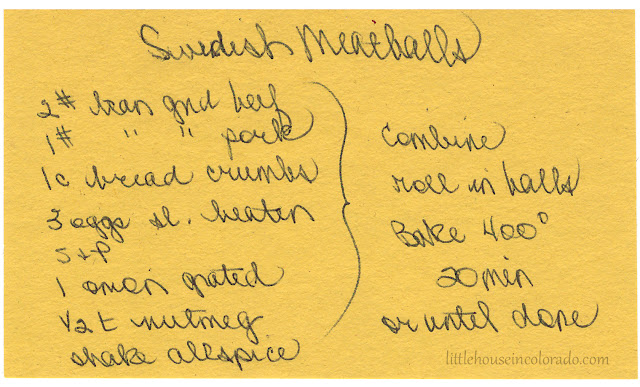 Swedish Meatballs
2# lean gnd beef
1# " " pork
1c bread crumbs
3 eggs sl. beaten
S+P
1 onion grated
1/2 t nutmeg
shake allspice
combine
roll in balls
Bake 400°
20 min
or until done
littlehouseincolorado.com